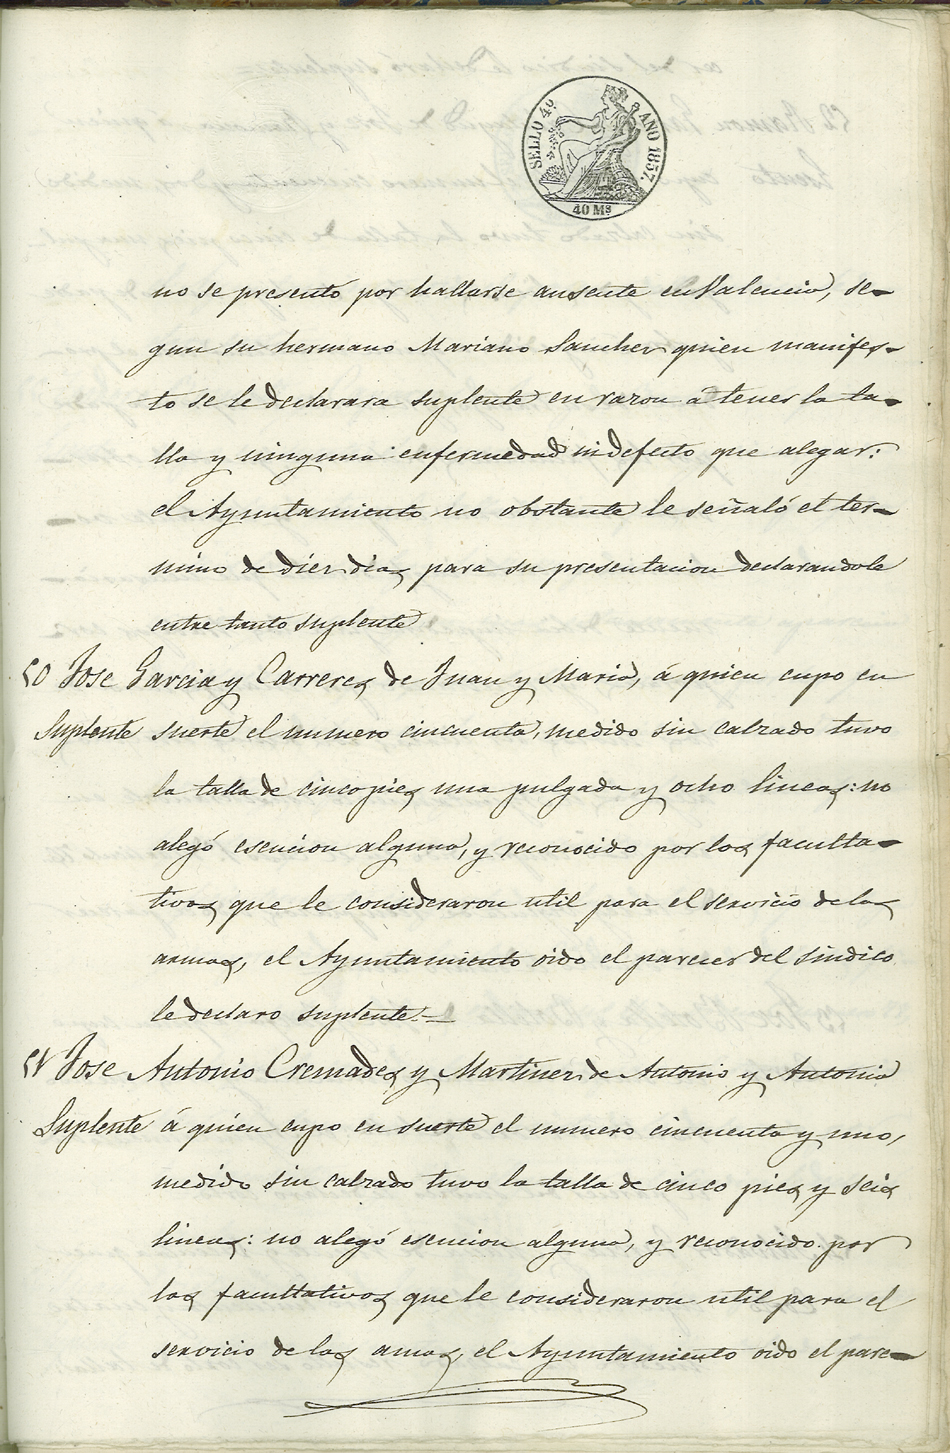 SELLO 4º AÑO 1857.
40 Mˢ
no se presentó por hallarse ausente en Valencia, se-
gun su hermano Mariano Sanchez quien manifes-
to se le declarara suplente en razon á tener la ta-
lla y ninguna enfermedad ni defecto que alegar:
el Ayuntamiento no obstante le señaló el ter-
mino de diez dias para su presentacion declarandole
entre tanto suplente
50 Jose Garcia y Carreres de Juan y Maria, á quien cupo en
Suplente suerte el numero cincuenta, medido sin calzado tuvo
la talla de cinco pies una pulgada y ocho lineas: no
alegó esencion alguna, y reconocido por los faculta-
tivos que le consideraron util para el servicio de las
armas, el Ayuntamiento oido el parecer del sindico
le declaro suplente.=
51 Jose Antonio Cremades y Martinez de Antonio y Antonia
Suplente á quien cupo en suerte el numero cincuenta y uno,
medido sin calzado tuvo la talla de cinco pies y seis
lineas: no alegó esencion alguna, y reconocido por
los facultativos que le consideraron util para el
servicio de las armas, el Ayuntamiento oido el pare-